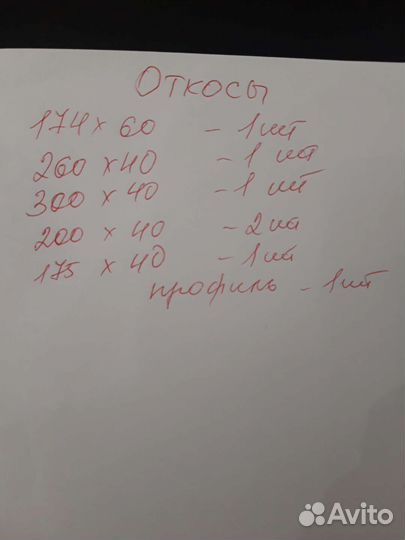 Откосы
174 х 60 - 1 шт
260 х 40 - 1 шт
300 х 40 - 1 шт
200 х 40 - 2 шт
175 х 40 - 1 шт
профиль - 1 шт
Avito